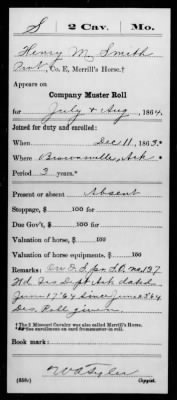 S 2 Cav. Mo.
Henry M. Smith
Pvt, Co. E, Merrill's Horse.†
Appears on
Company Muster Roll
for July & Aug, 1864.
Joined for duty and enrolled:
When Dec 11, 1863.*
Where Brownsville, Ark
Period 3 years.*
Present or absent Absent
Stoppage, $ 100 for
Due Gov't, $ 100 for
Valuation of horse, $ 100
Valuation of horse equipments, $ 100
Remarks: On D. S. per S.O. no 137
Hd Qrs Dept Ark dated
June 17 '64 since June 23 64
Des. Roll given
†The 2 Missouri Cavalry was also called Merrill's Horse.
*See enrollment on card from muster-in roll.
Book mark:
W A Tyler
(358c) Copyist.